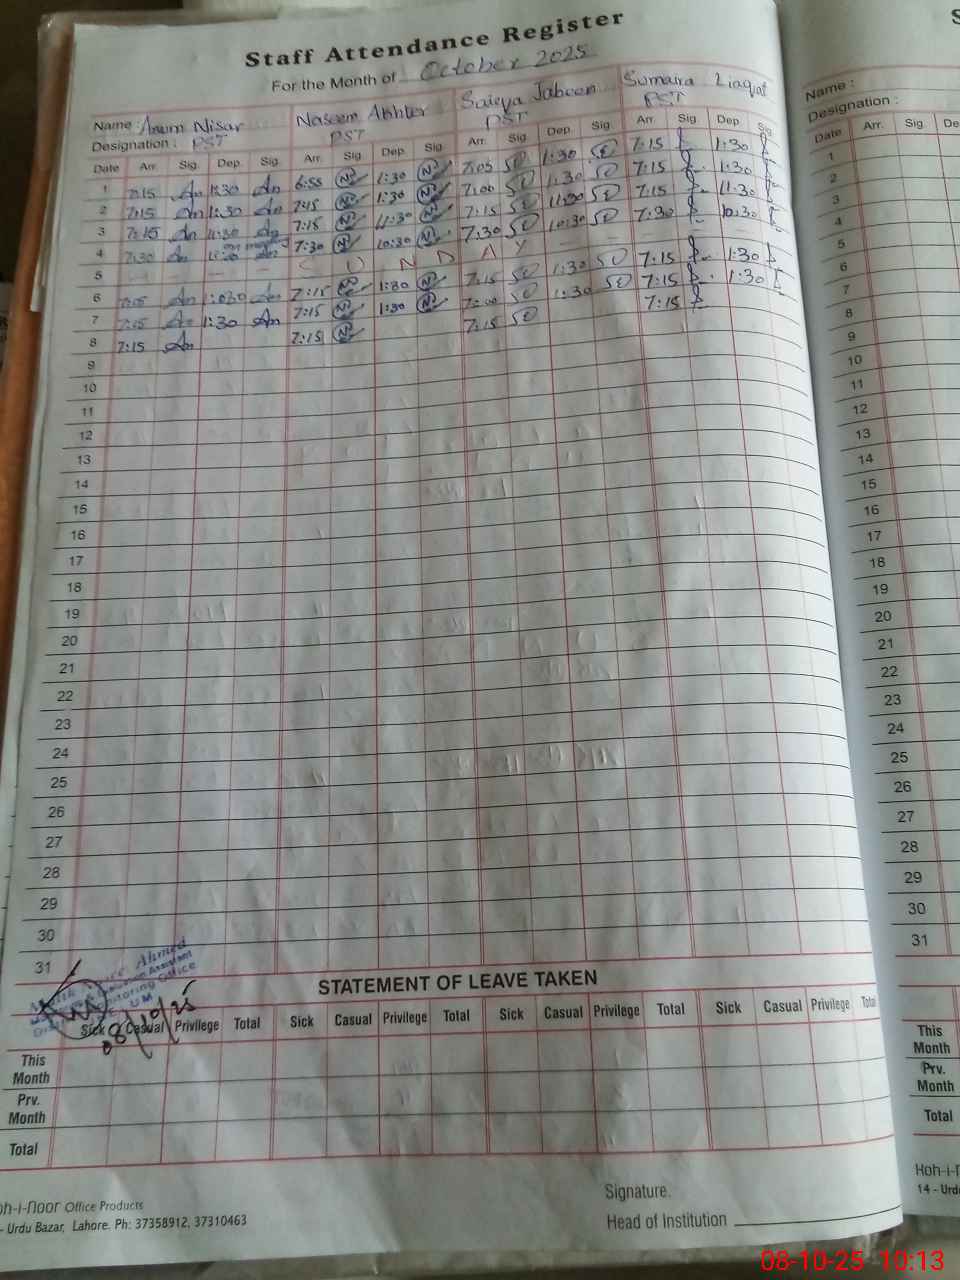 Staff Attendance Register
For the Month of October 2025
Name : Anum Nisar Naseem Akhter Saieya Jabeen Sumaira Liaqat
Designation : PST PST PST PST
Date Arr. Sig. Dep. Sig. Arr. Sig. Dep. Sig. Arr. Sig. Dep. Sig. Arr. Sig. Dep. Sig.
1 7:15 An 1:30 An 6:55 N 1:30 N 7:05 SD 1:30 SD 7:15 1:30
2 7:15 An 1:30 An 7:15 N 1:30 N 7:00 SD 1:30 SD 7:15 1:30
3 7:15 An 11:30 An 7:15 N 11:30 N 7:15 SD 11:30 SD 7:15 11:30
4 7:30 An An 7:30 N 10:30 N 7:30 SD 10:30 SD 7:30 10:30
5 S U N D A Y
6 7:05 An An 7:15 N 1:30 N 7:15 SD 1:30 SD 7:15 1:30
7 7:15 An 1:30 An 7:15 N 1:30 N 7:00 SD 1:30 SD 7:15 1:30
8 7:15 An 7:15 N 7:15 SD 7:15
9
10
11
12
13
14
15
16
17
18
19
20
21
22
23
24
25
26
27
28
29
30
31
Ahmed
Assistant
Monitoring Office
08/10/25
STATEMENT OF LEAVE TAKEN
Sick Casual Privilege Total Sick Casual Privilege Total Sick Casual Privilege Total Sick Casual Privilege Total
This Month
Prv. Month
Total
Signature.
Head of Institution
oh-i-noor Office Products
- Urdu Bazar, Lahore. Ph: 37358912, 37310463
S
Name :
Designation :
Date Arr. Sig. De
1
2
3
4
5
6
7
8
9
10
11
12
13
14
15
16
17
18
19
20
21
22
23
24
25
26
27
28
29
30
31
This Month
Prv. Month
Total
Koh-i-n
14 - Urdu
08-10-25 10:13